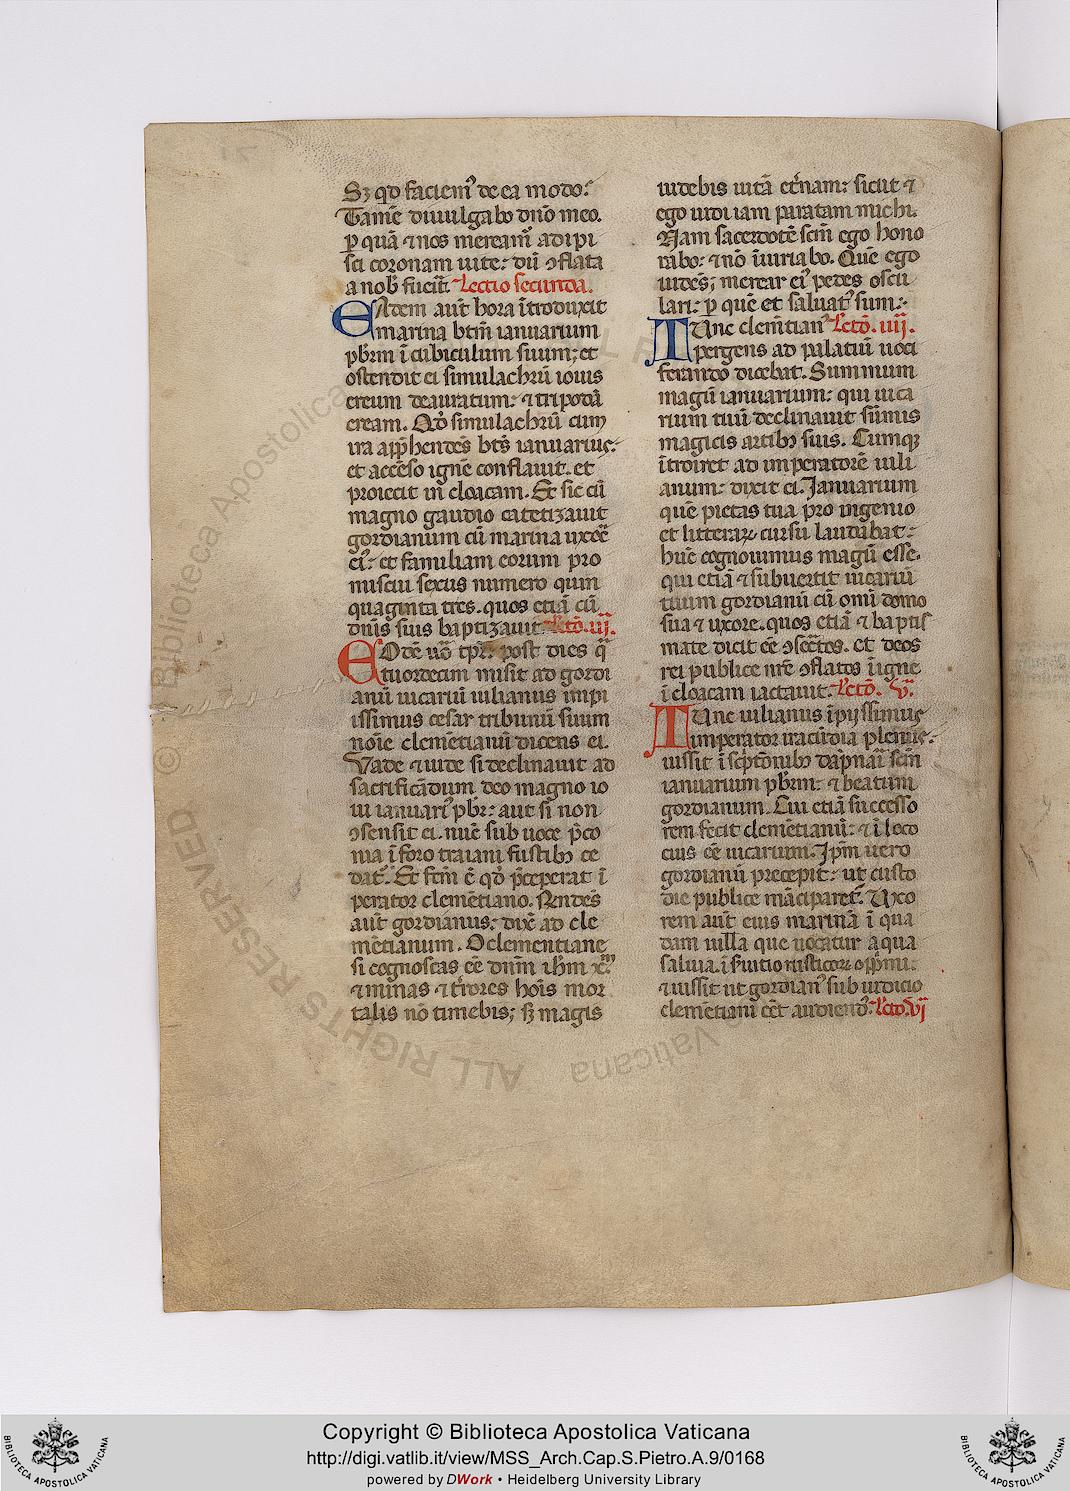 Sꝫ qđ faciem᷒ de ea modo.
Tam̄e diuulgabo dn̄o meo.
ꝑ quā ⁊ nos meream᷒ adipi
sci coronam uite: dū ꝯflata
a nob̄ fuerit. Lectio secunda.
Eadem aut̄ hora ītroduxit
marina btm̄ ianuarium
pbr̄m ī cubiculum suum; et
ostendit ei simulachrū iouis
ereum deauratum: ⁊ tripodā
eream. Qđ simulachrū cum
ira app̄hendēs bt̄s ianuarius:
et accēso igne conflauit. et
proiecit in cloacam. Et sic cū
magno gaudio catetizauit
gordianum cū marina uxōe
ei᷒: et familiam eorum pro
miscui sexus numero quin
quaginta tres. quos etiā cū
dn̄is suis baptizauit. Lect̄o. iij.
Eodē uō tp̄r post dies q̄
tuordecim misit ad gordi
anū uicariū iulianus impi
issimus cesar tribunū suum
noīe clemētianū dicens ei.
Vade ⁊ uide si declinauit ad
sacrificādum deo magno io
ui ianuari᷒ pbr̄: aut si non
ꝯsensit ei. nūc sub uoce p̄co
nia ī foro traiani fustibꝫ ce
dat᷒. Et fcm̄ ē qđ p̄ceperat ī
perator clemētiano. Rndēs
aut̄ gordianus: dixit ad cle
mētianum. O clementiane
si cognoscas eē dn̄m ihm̄ xp̄m
⁊ minas ⁊ t̄rores hoīs mor
talis nō timebis; sꝫ magis
uidebis uitā et̄nam: sicut ⁊
ego uidi iam paratam michi.
Nam sacerdotē scm̄ ego hono
rabo: ⁊ nō īiuriabo. Quē ego
uidēs; merear ei᷒ pedes oscu
lari: ꝑ quē et saluat᷒ sum:
Tunc clemētian᷒ Lect̄o. iiij.
pergens ad palatiū uoci
ferando dicebat. Summum
magū ianuarium: qui uica
rium tuū declinauit sūmis
magicis artibꝫ suis. Cumqꝫ
ītroiret ad imperatorē iuli
anum: dixit ei. Ianuarium
quē pietas tua pro ingenio
et litteraꝝ cursu laudabat:
hūc cognouimus magū esse.
qui etiā ⁊ subuertit uicariū
tuum gordianū cū omī domo
sua ⁊ uxore. quos etiā ⁊ baptis
mate dicit eē ꝯsec̄tos. et deos
rei publice nr̄e ꝯflatos ī igne
ī cloacam iactauit. Lect̄o. v.
Tunc iulianus īpijssimus
imperator iracūdia plenus:
iussit ī sc̄ptōnibꝫ dāpnari scm̄
ianuarium pbr̄m: ⁊ beatum
gordianum. Cui etiā successo
rem fecit clemētianū: ⁊ ī loco
eius eē uicarium. Ip̄m uero
gordianū precepit: ut custo
die publice mācipareť. Uxo
rem aut̄ eius marinā ī qua
dam uilla que uocatur aqua
saluia. ī s̄uitio rusticoꝝ opp̄mi:
⁊ iussit ut gordian᷒ sub iudicio
clemētiani eēt audiendꝰ. Lect̄o. vj
Copyright © Biblioteca Apostolica Vaticana
http://digi.vatlib.it/view/MSS_Arch.Cap.S.Pietro.A.9/0168
powered by DWork • Heidelberg University Library
BIBLIOTECA APOSTOLICA VATICANA
BIBLIOTECA APOSTOLICA VATICANA
© Biblioteca Apostolica Vaticana ALL RIGHTS RESERVED